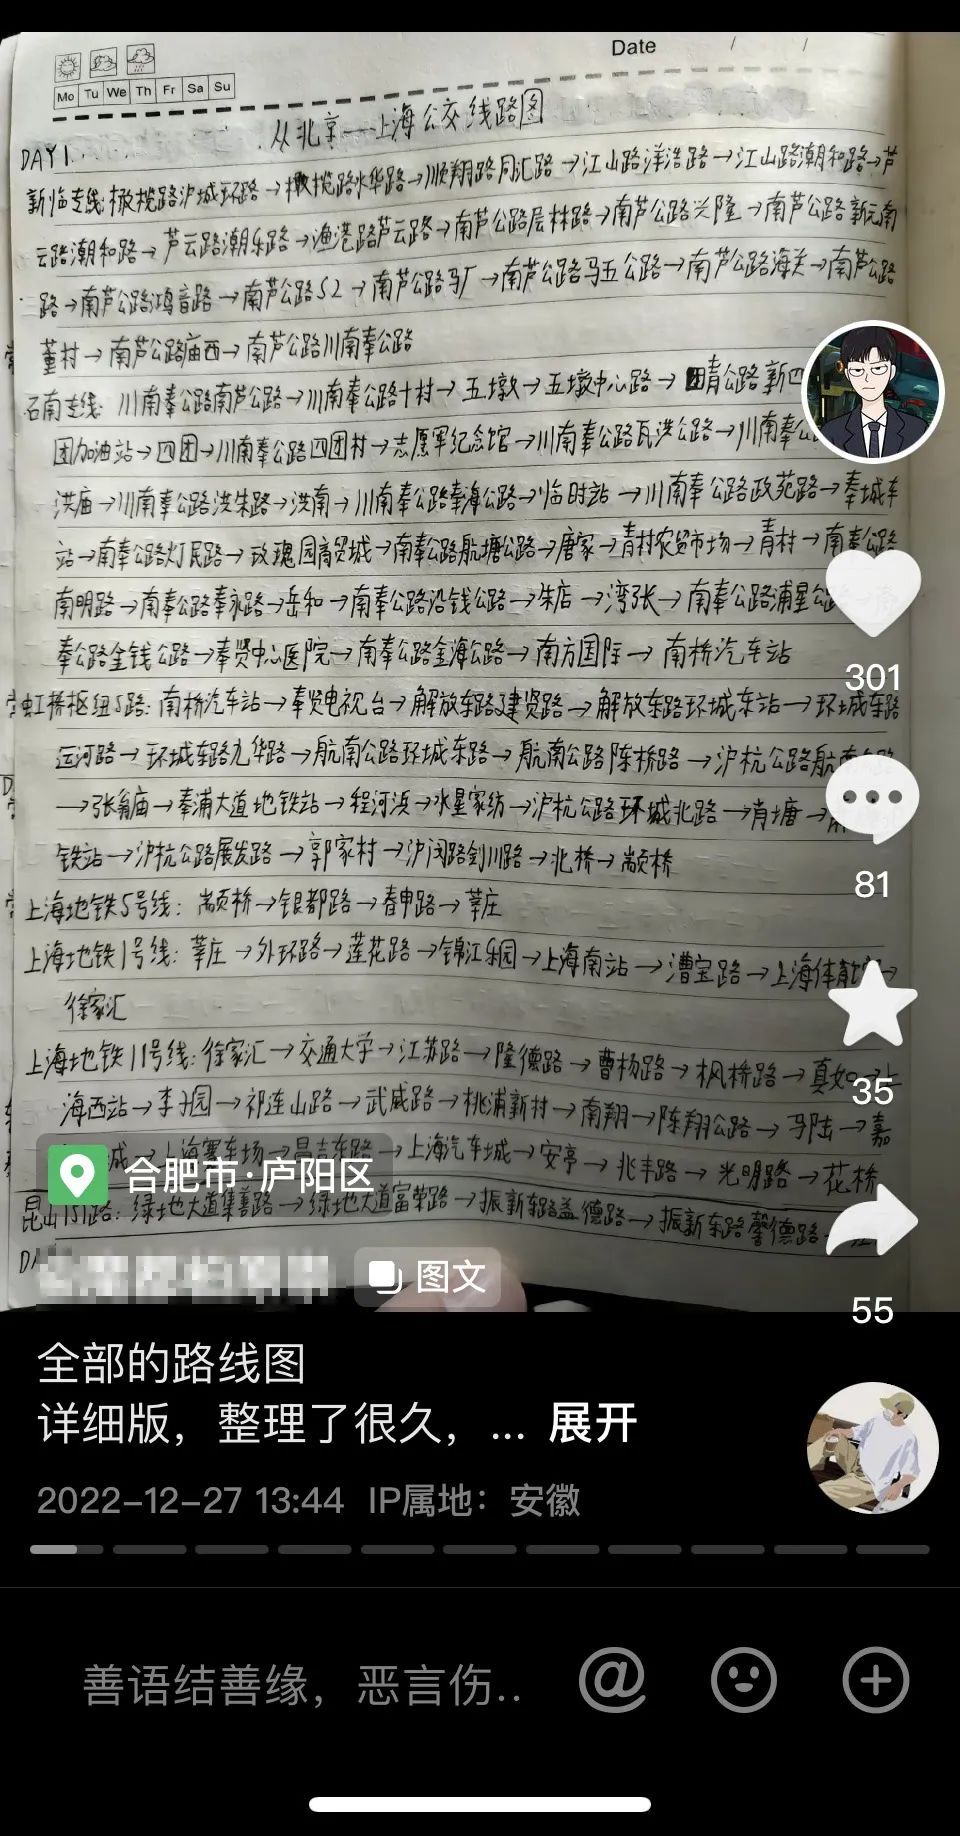 Date / /
Mo Tu We Th Fr Sa Su
从北京——上海公交线路图
DAY1.
新临专线:橄榄路沪城环路→橄榄路水华路→顺翔路同汇路→江山路洋浩路→江山路潮和路→芦
云路潮和路→芦云路潮乐路→渔港路芦云路→南芦公路层林路→南芦公路兴隆→南芦公路新元南
路→南芦公路鸿音路→南芦公路S2→南芦公路马厂→南芦公路马五公路→南芦公路海关→南芦公路
董村→南芦公路庙西→南芦公路川南奉公路
石南专线:川南奉公路南芦公路→川南奉公路十村→五墩→五墩中心路→团青公路新四
团加油站→四团→川南奉公路四团村→志愿军纪念馆→川南奉公路瓦洪公路→川南奉公
洪庙→川南奉公路洪朱路→洪南→川南奉公路奉海公路→临时站→川南奉公路政苑路→奉城车
站→南奉公路灯民路→玫瑰园商贸城→南奉公路航塘公路→唐家→青村农贸市场→青村→南奉公路
南明路→南奉公路奉永路→岳和→南奉公路沿钱公路→朱店→湾张→南奉公路浦星公路→南
奉公路金钱公路→奉贤中心医院→南奉公路金海公路→南方国际→南桥汽车站
虹桥枢纽5路:南桥汽车站→奉贤电视台→解放东路建贤路→解放东路环城东站→环城东路
运河路→环城东路九华路→航南公路环城东路→航南公路陈桥路→沪杭公路航南公路
→张翁庙→奉浦大道地铁站→程河浜→水星家纺→沪杭公路环城北路→肖塘→
铁站→沪杭公路展发路→郭家村→沪闵路剑川路→北桥→颛桥
上海地铁5号线:颛桥→银都路→春申路→莘庄
上海地铁1号线:莘庄→外环路→莲花路→锦江乐园→上海南站→漕宝路→上海体育馆→
徐家汇
上海地铁11号线:徐家汇→交通大学→江苏路→隆德路→曹杨路→枫桥路→真如→上
海西站→李子园→祁连山路→武威路→桃浦新村→南翔→陈翔公路→马陆→嘉
城→上海赛车场→昌吉东路→上海汽车城→安亭→兆丰路→光明路→花桥
昆山151路:绿地大道集善路→绿地大道富荣路→振新东路益德路→振新东路馨德路
301
81
35
55
合肥市·庐阳区
图文
全部的路线图
详细版，整理了很久，... 展开
2022-12-27 13:44 IP属地：安徽
善语结善缘，恶言伤..
@